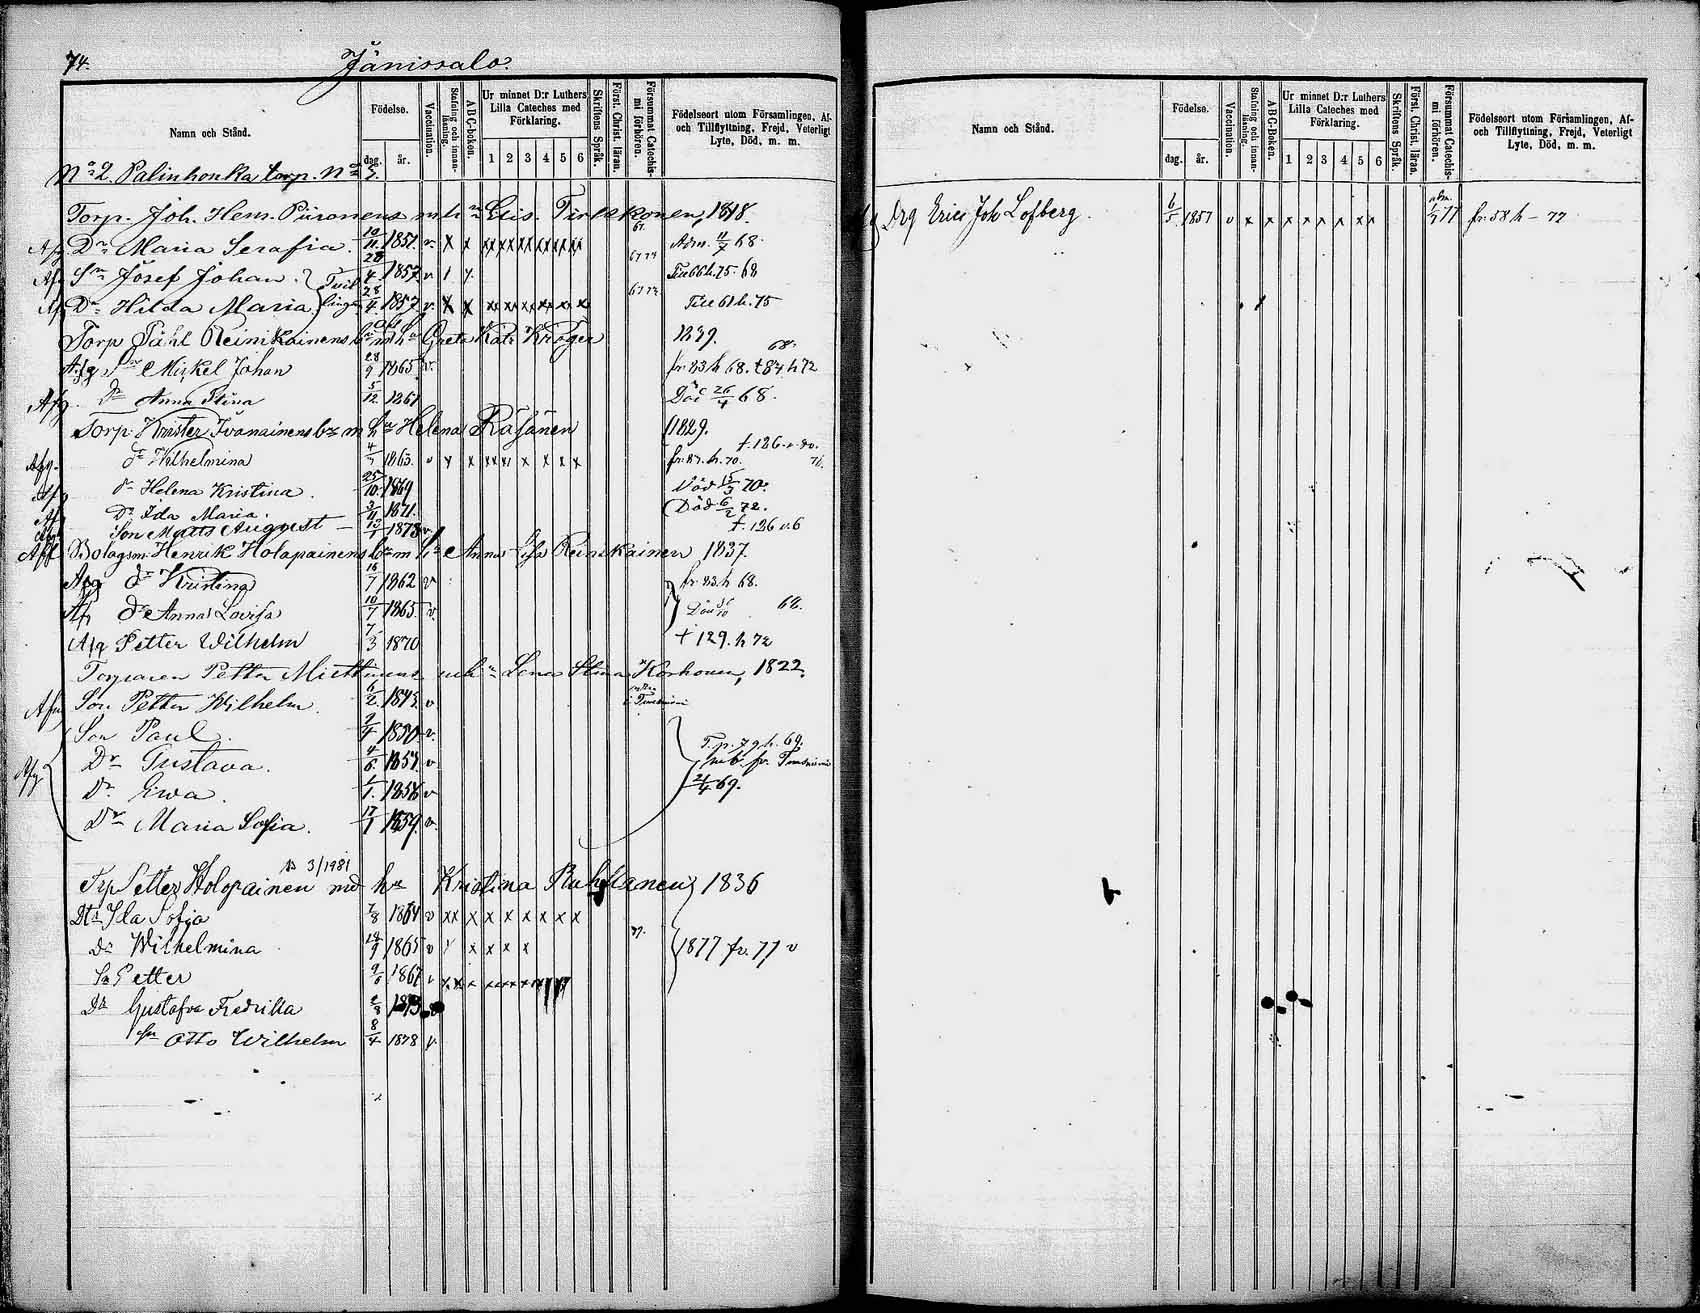 74. Jänissalo.
Namn och Stånd. Födelse. dag. år. Vaccination. Stafning och innan-läsning. A B C-boken. Ur minnet D:r Luthers Lilla Cateches med Förklaring. 1 2 3 4 5 6 Skriftens Språk. Först. Christ. läran. Försummat Catechis-mi förhören. Födelseort utom Församlingen, Af- och Tillflyttning, Frejd, Veterligt Lyte, Död, m. m.
No 2. Palinhonka torp. No
Torp. Joh. Hem. Piironens m h Elis. Tirkkonen, 1818.
Afg Dr Maria Serafia. 10/11 1851. v. x x xx xx xx xx xx xx 67. Adm. 11/7 68.
Afg Sn Josef Johan. Tvil 28/4 1857 v 1 67 74 Till 66 h. 75 68
Af Dr Hilda Maria lingar 28/4 1857 v. x x 67 74 Till 61 h. 75
Torp Påhl Reinikainens m h Greta Kat. Kröger 1839.
Afg Sn Mickel Johan 28/9 1865 v. 68. fr. 83 h 68. t 84 h 72
Afg. Dr Anna Stina 5/12 1861 Död 26/4 68.
Torp. Krister Ivanainens b m h Helena Räsänen 1829.
Afg. dr Wilhelmina 4/7 1863. v x x xx x x x x fr. 87. h. 70. t. 126 v 80.
Afg dr Helena Kristina. 25/10 1869 Död 15/3 70.
Af Dr Ida Maria. 3/11 1871. Död 6/2 72.
Afg Son Matts August 1878 v t. 126 v. 6
Afl Bolagsm. Henrik Holopainens b m h Anna Lisa Reinikainen 1837.
Afg dr Kristina 16/7 1862 v fr. 83. h 68.
Af dr Anna Lovisa 10/7 1865. v. Död 68.
Afg Petter Wilhelm 7/3 1870 t 129. h 72
Torparen Petter Miettinens m h Lena Stina Korhonen, 1822.
Afg Son Petter Wilhelm. 6/2 1845. v
Son Paul. 2/4 1850 v.
Afg Dr Gustava. 4/6 1854. v T. p. 79 h. 69.
Dr Ewa. 1/1. 1856 v 21/4 69.
Dr Maria Sofia. 17/1 1859. v.
3/1981
Trp Petter Holopainen md hu Kristina 1836
Dtr Ida Sofia 7/8 1864 v xx x x x x x x x
Dr Wilhelmina 19/9 1865 v x x x x 77. 1877 fr. 77 v
Sn Petter 1867 v
Dr Gustafva Fredrika 2/8 1873
Sn Otto Wilhelm 8/4 1878 v.
Namn och Stånd. Födelse. dag. år. Vaccination. Stafning och innan-läsning. A B C-Boken. Ur minnet D:r Luthers Lilla Cateches med Förklaring. 1 2 3 4 5 6 Skriftens Språk. Först. Christ. läran. Försummat Catechis-mi förhören. Födelseort utom Församlingen, Af- och Tillflyttning, Frejd, Veterligt Lyte, Död, m. m.
Drg Eric Joh Lofberg. 6/5 1857 v x x x x x x x x adm. 77 fr. 58 h - 77